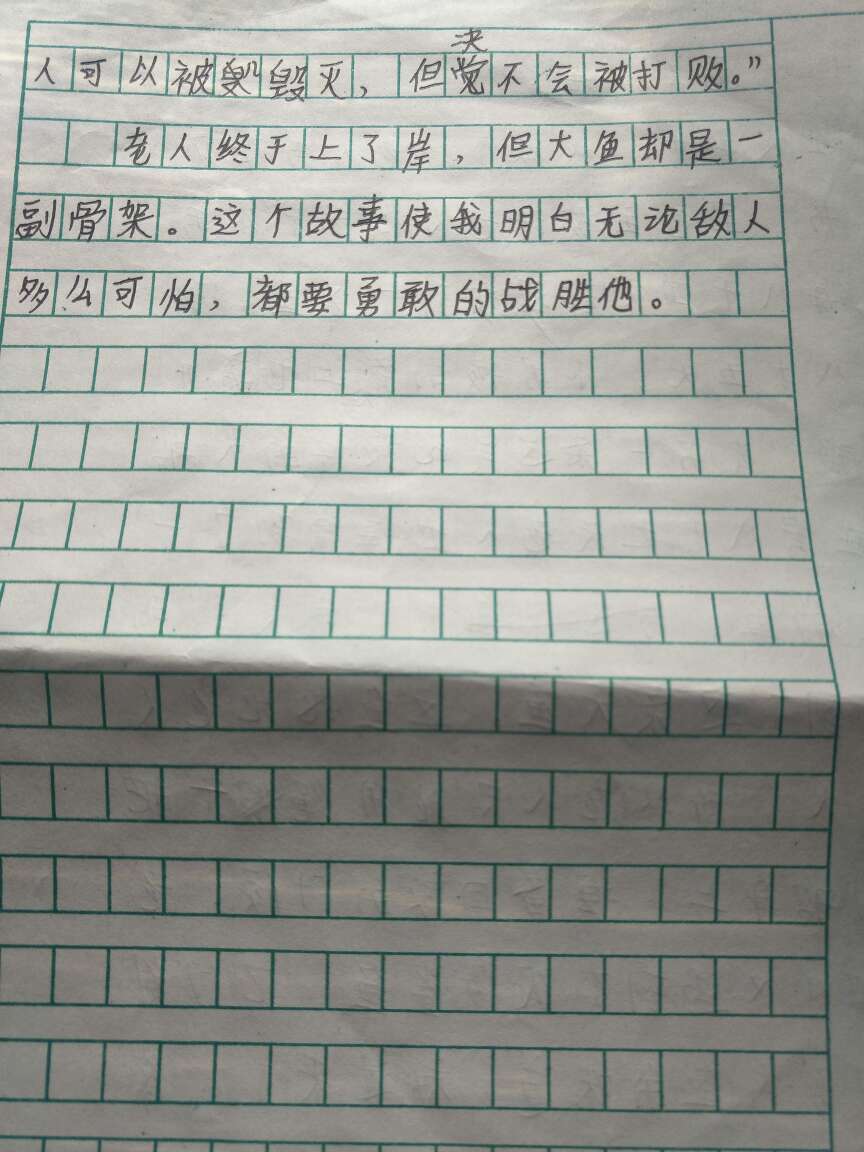 决
人可以被毁毁灭，但觉不会被打败。”
老人终于上了岸，但大鱼却是一
副骨架。这个故事使我明白无论敌人
多么可怕，都要勇敢的战胜他。